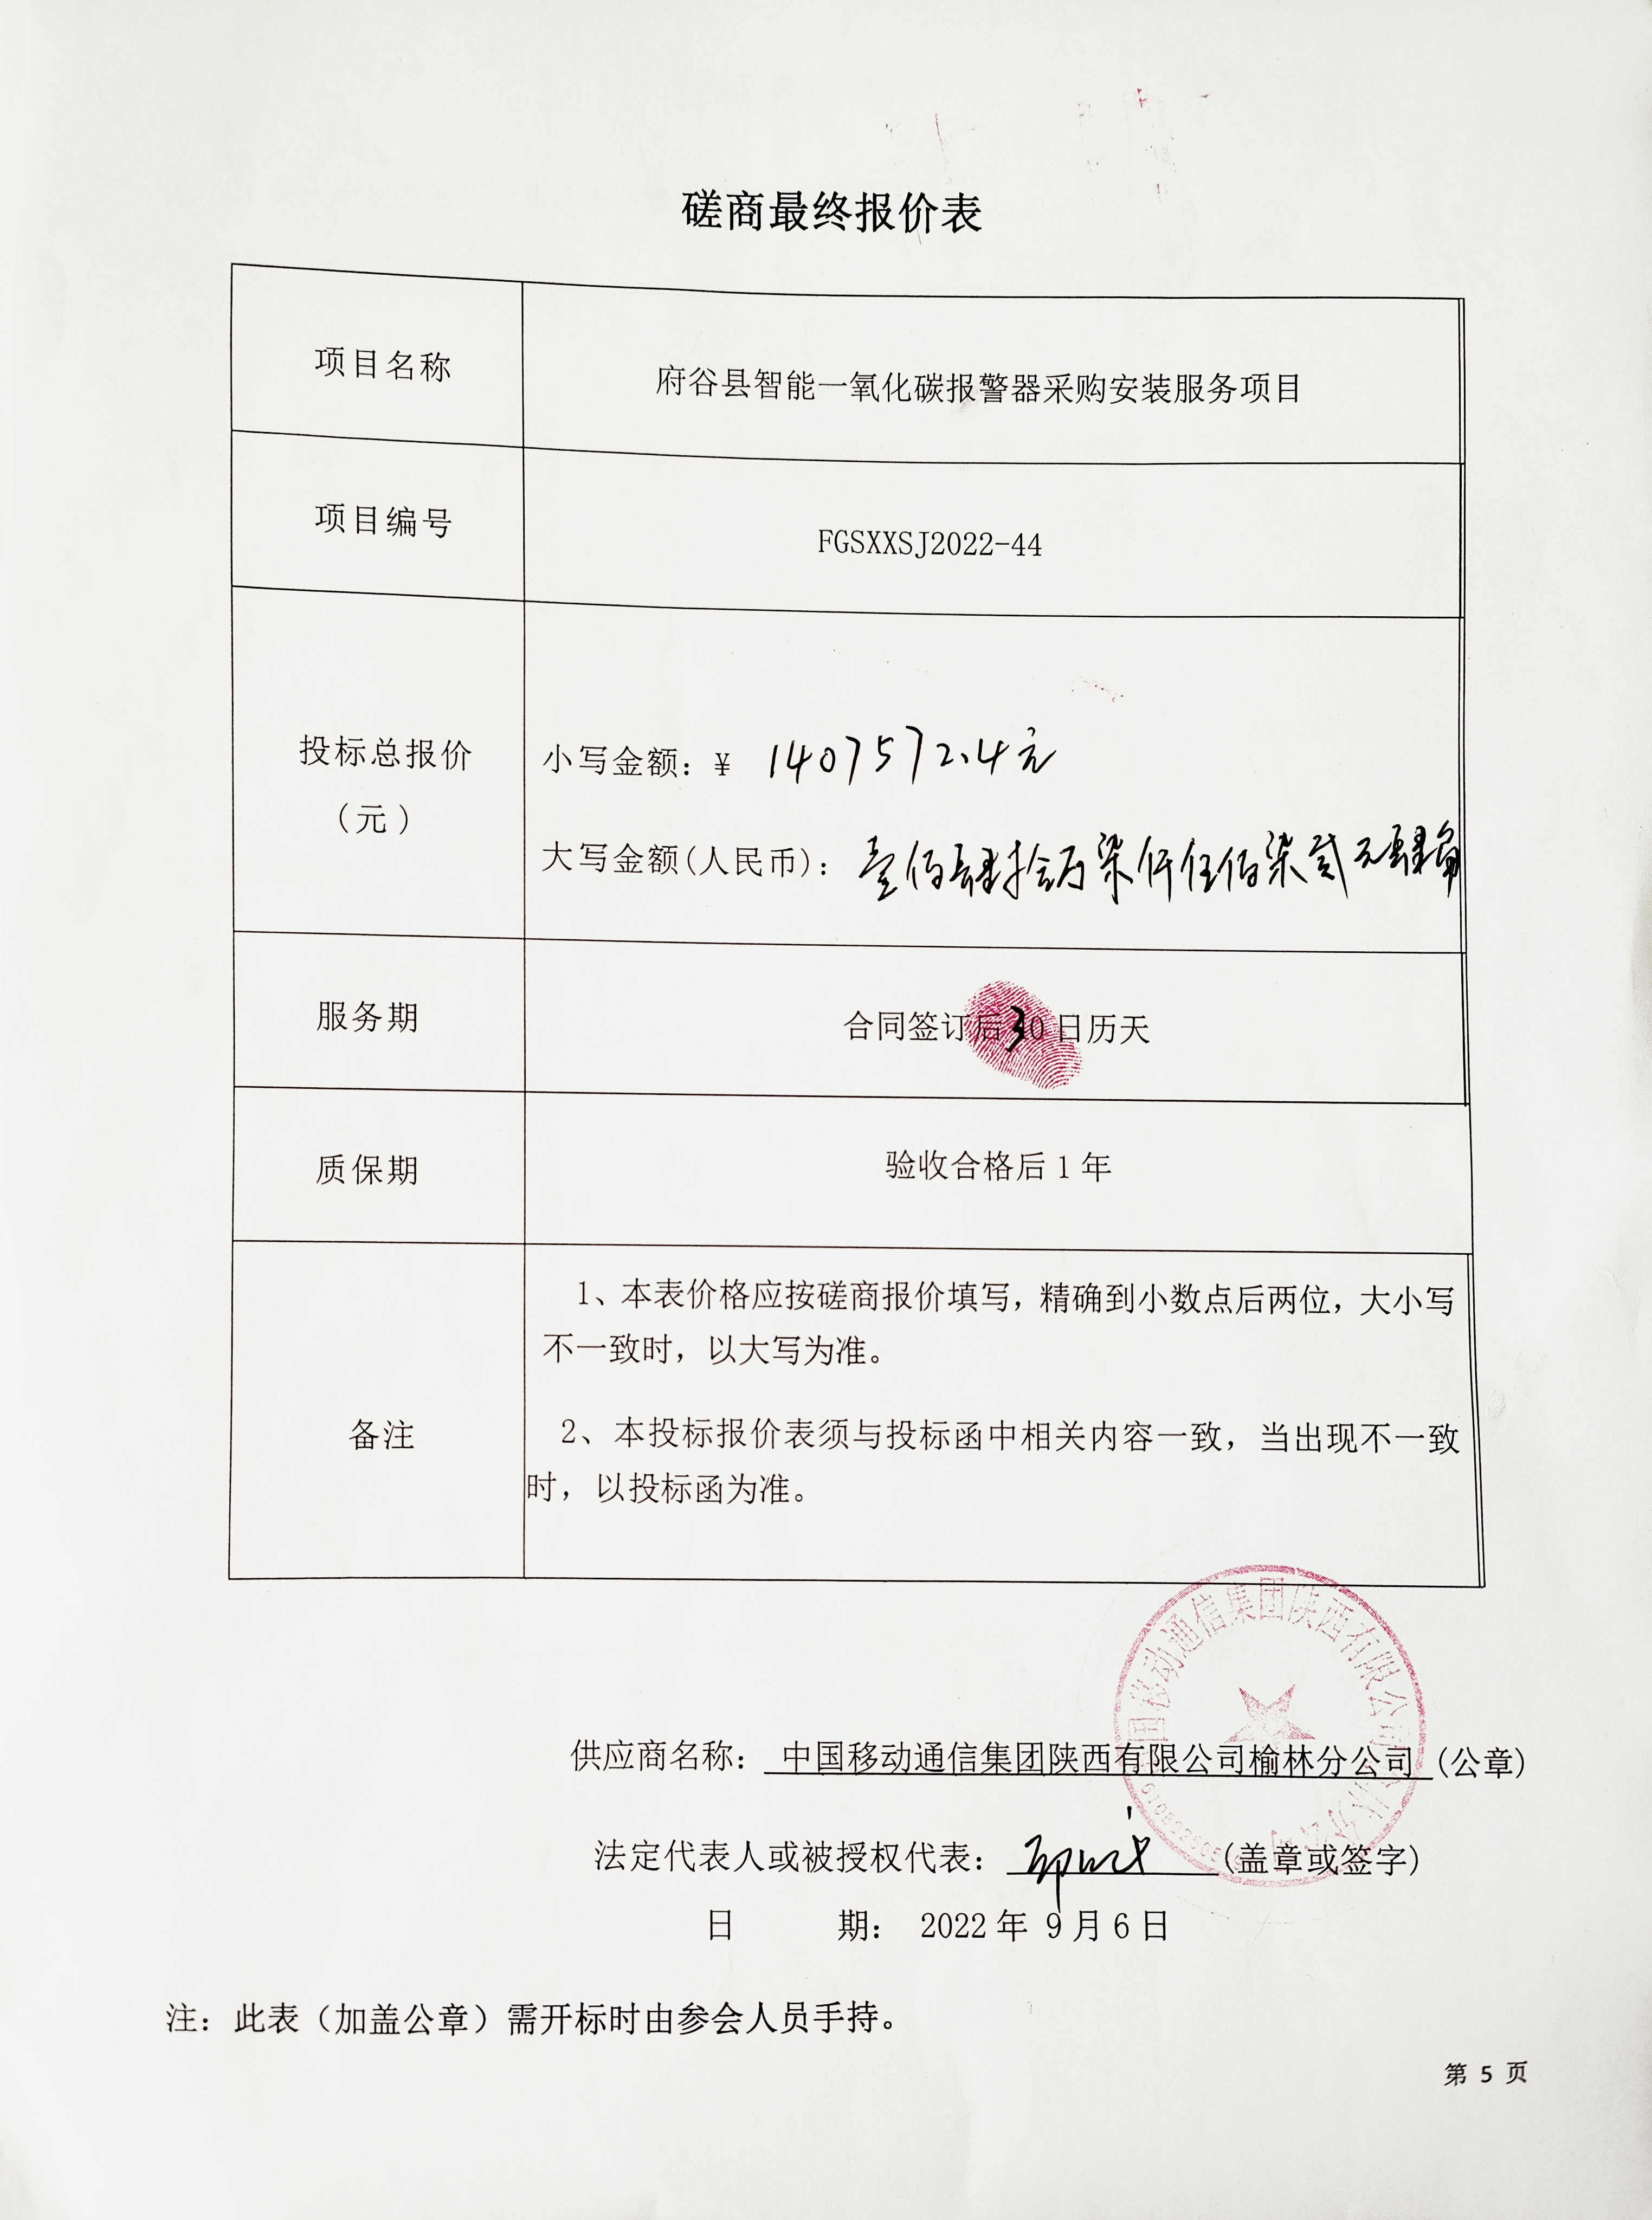 磋商最终报价表
项目名称
府谷县智能一氧化碳报警器采购安装服务项目
项目编号
FGSXXSJ2022-44
投标总报价
（元）
小写金额：¥ 1407572.4元
大写金额(人民币)：壹佰肆拾万柒仟伍佰柒贰元肆角
服务期
合同签订后30日历天
质保期
验收合格后1年
备注
1、本表价格应按磋商报价填写，精确到小数点后两位，大小写
不一致时，以大写为准。
2、本投标报价表须与投标函中相关内容一致，当出现不一致
时，以投标函为准。
中国移动通信集团陕西有限公司
供应商名称：中国移动通信集团陕西有限公司榆林分公司(公章)
法定代表人或被授权代表：(盖章或签字)
日 期： 2022年 9月6日
注：此表（加盖公章）需开标时由参会人员手持。
第 5 页